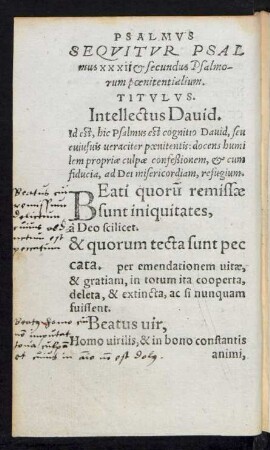 PSALMVS
SEQVITVR PSAL
mus xxxii & secundus Psalmo-
rum pœnitentialium.
TITVLVS.
Intellectus Dauid.
Id est, hic Psalmus est cognitio Dauid, seu
cuiusuis veraciter pœnitentis: docens humi
lem propriæ culpæ confeßionem, & cum
fiducia, ad Dei misericordiam, refugium.
BEati quorũ remissæ
sunt iniquitates,
à Deo scilicet.
& quorum tecta sunt pec
cata. per emendationem vitæ,
& gratiam, in totum ita cooperta,
deleta, & extincta, ac si nunquam
fuissent.
Beatus vir,
Homo virilis, & in bono constantis
animi,
Beatus cui
remissum
peccatum